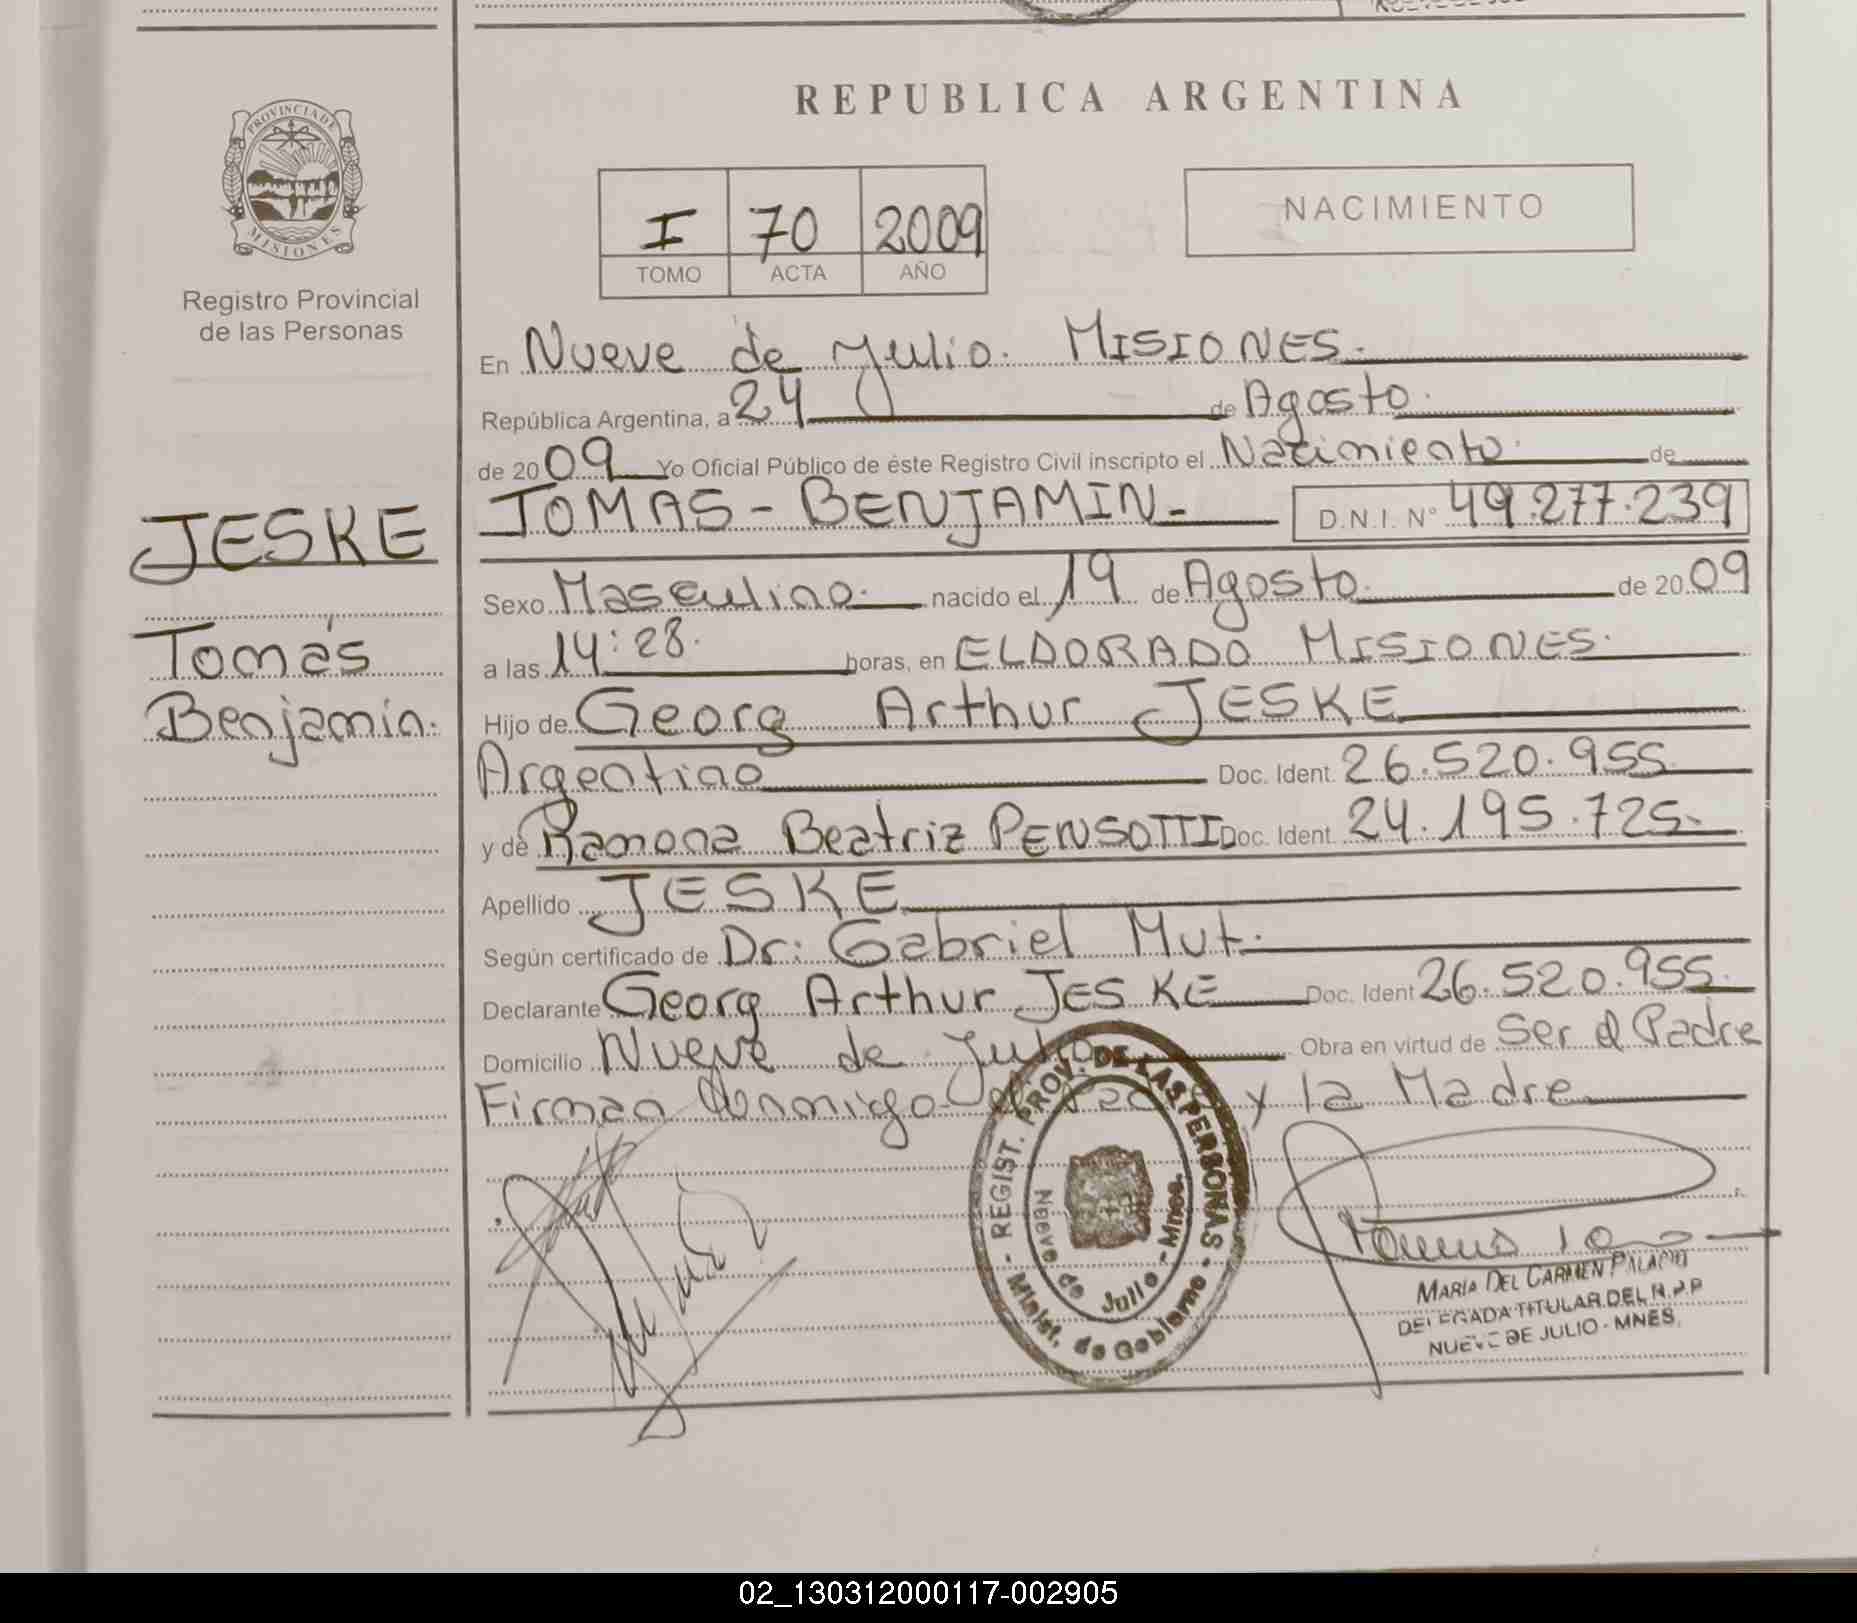 REPUBLICA ARGENTINA
PROVINCIA DE
MISIONES
Registro Provincial
de las Personas
I 70 2009
TOMO ACTA AÑO
NACIMIENTO
En Nueve de Julio. MISIONES.
República Argentina, a 24 de Agosto.
de 2009 Yo Oficial Público de éste Registro Civil inscripto el Nacimiento de
JESKE
Tomás
Benjamín.
TOMAS - BENJAMIN - D.N.I. Nº 49.277.239
Sexo Masculino. nacido el 19 de Agosto. de 2009
a las 14:28. horas, en ELDORADO MISIONES.
Hijo de Georg Arthur JESKE
Argentino Doc. Ident. 26.520.955
y de Ramona Beatriz PENSOTTI Doc. Ident. 24.195.725-
Apellido JESKE
Según certificado de Dr: Gabriel Mut.
Declarante Georg Arthur JESKE Doc. Ident 26.520.955.
Domicilio Nueve de Julio Obra en virtud de Ser el Padre
Firman Conmigo el Padre y la Madre
REGIST. PROV. DE LAS PERSONAS - Minist. de Gobierno -
Nueve de Julio - Mnes.
MARIA DEL CARMEN PALACIO
DELEGADA TITULAR DEL R.P.P
NUEVE DE JULIO - MNES.
02_130312000117-002905